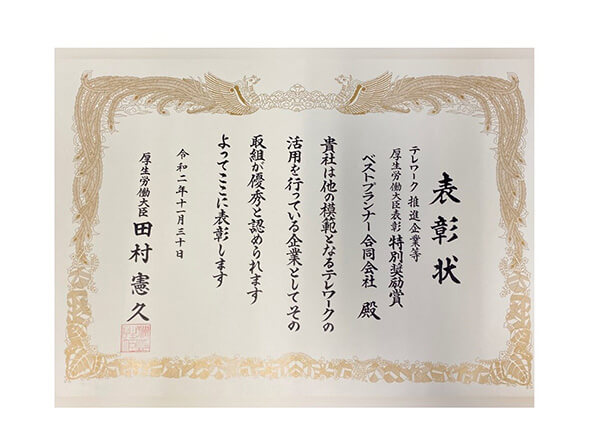 表彰状
テレワーク推進企業等
厚生労働大臣表彰 特別奨励賞
ベストプランナー合同会社 殿
貴社は他の模範となるテレワークの
活用を行っている企業としてその
取組が優秀と認められます
よってここに表彰します
令和二年十一月三十日
厚生労働大臣 田村憲久